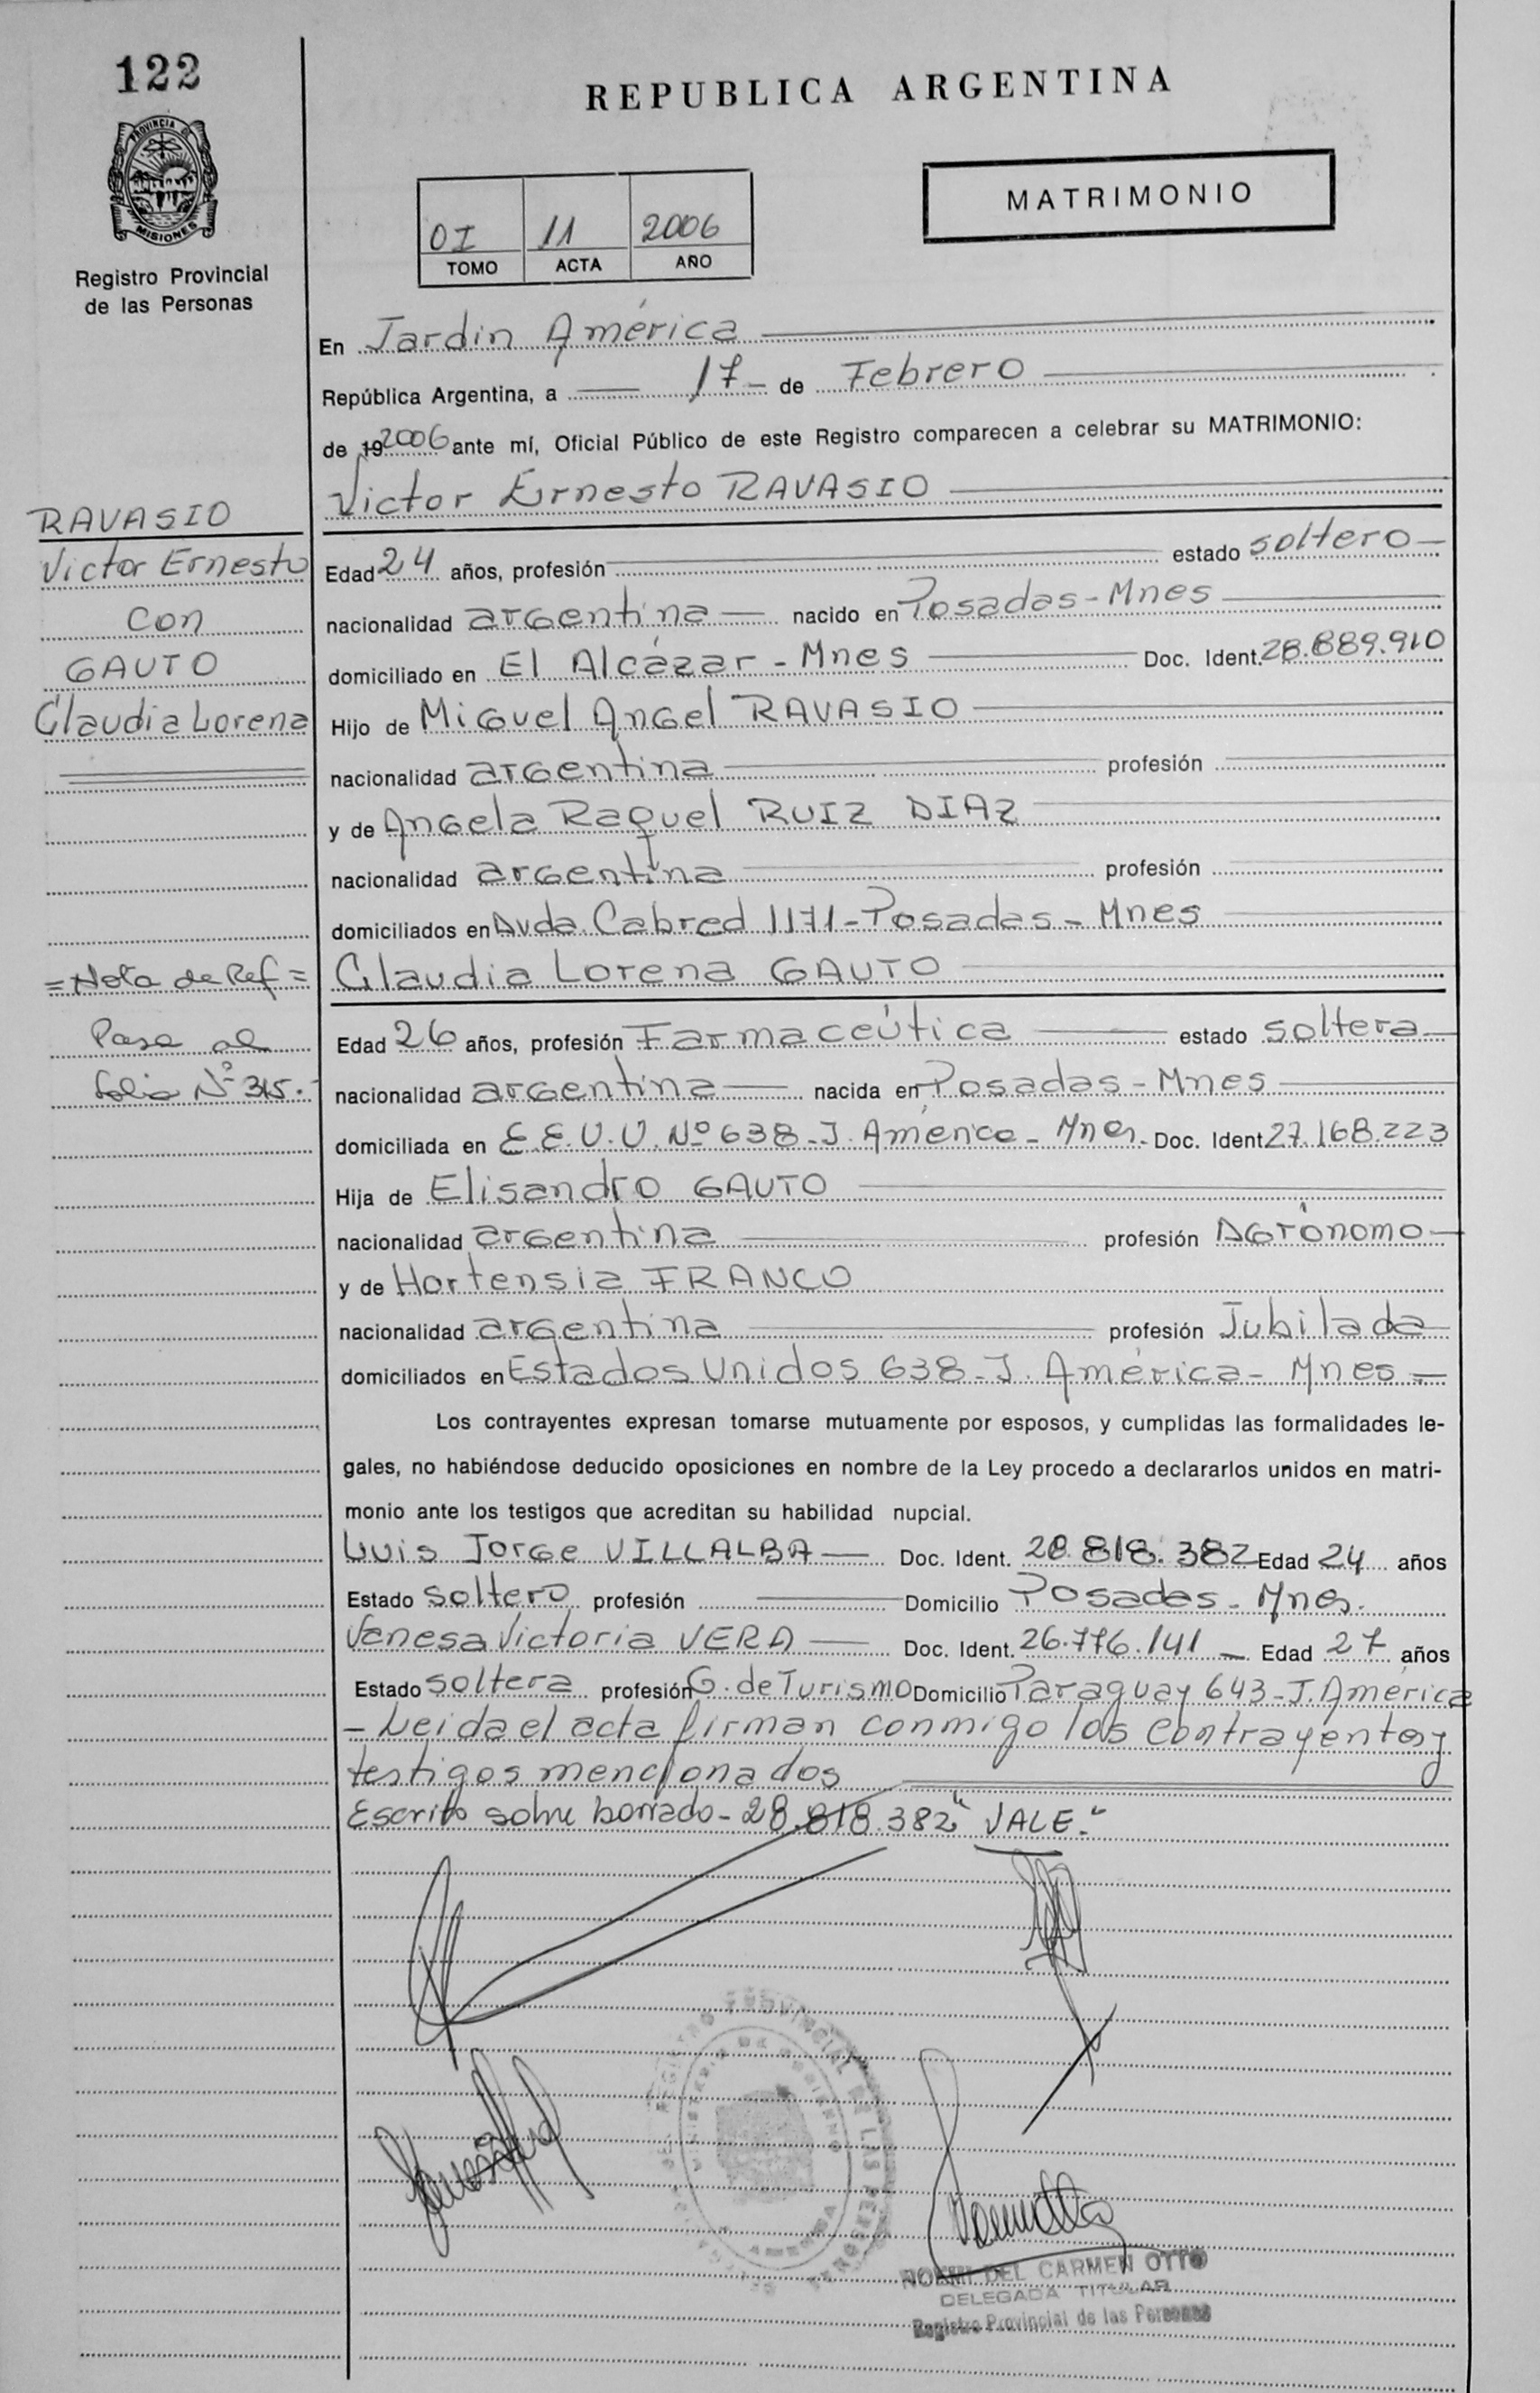 122
REPUBLICA ARGENTINA
PROVINCIA DE
MISIONES
Registro Provincial
de las Personas
MATRIMONIO
0I 11 2006
TOMO ACTA AÑO
En Jardin América
República Argentina, a 17 de Febrero
de 19 2006 ante mí, Oficial Público de este Registro comparecen a celebrar su MATRIMONIO:
Victor Ernesto RAVASIO
RAVASIO
Victor Ernesto
con
GAUTO
Claudia Lorena
Edad 24 años, profesión estado soltero
nacionalidad argentina nacido en Posadas - Mnes
domiciliado en El Alcázar - Mnes Doc. Ident. 28.889.910
Hijo de Miguel Angel RAVASIO
nacionalidad argentina profesión
y de Angela Raquel RUIZ DIAZ
nacionalidad argentina profesión
domiciliados en Avda. Cabred 1171 - Posadas - Mnes
Claudia Lorena GAUTO
= Nota de Ref =
Pasa al
folio Nº 315.-
Edad 26 años, profesión Farmaceútica estado soltera
nacionalidad argentina nacida en Posadas - Mnes
domiciliada en E.E.U.U. Nº 638 - J. América - Mnes. Doc. Ident 27.168.223
Hija de Elisandro GAUTO
nacionalidad argentina profesión Agrónomo
y de Hortensia FRANCO
nacionalidad argentina profesión Jubilada
domiciliados en Estados Unidos 638 - J. América - Mnes
Los contrayentes expresan tomarse mutuamente por esposos, y cumplidas las formalidades le-
gales, no habiéndose deducido oposiciones en nombre de la Ley procedo a declararlos unidos en matri-
monio ante los testigos que acreditan su habilidad nupcial.
Luis Jorge VILLALBA Doc. Ident. 28.818.382 Edad 24 años
Estado soltero profesión Domicilio Posadas - Mnes.
Vanesa Victoria VERA Doc. Ident. 26.776.141 Edad 27 años
Estado soltera profesión G. de Turismo Domicilio Paraguay 643 - J. América
- Leida el acta firman conmigo los contrayentes y
testigos mencionados
Escrito sobre borrado - 28.818.382" VALE.-
NOEMI DEL CARMEN OTTO
DELEGADA TITULAR
Registro Provincial de las Personas